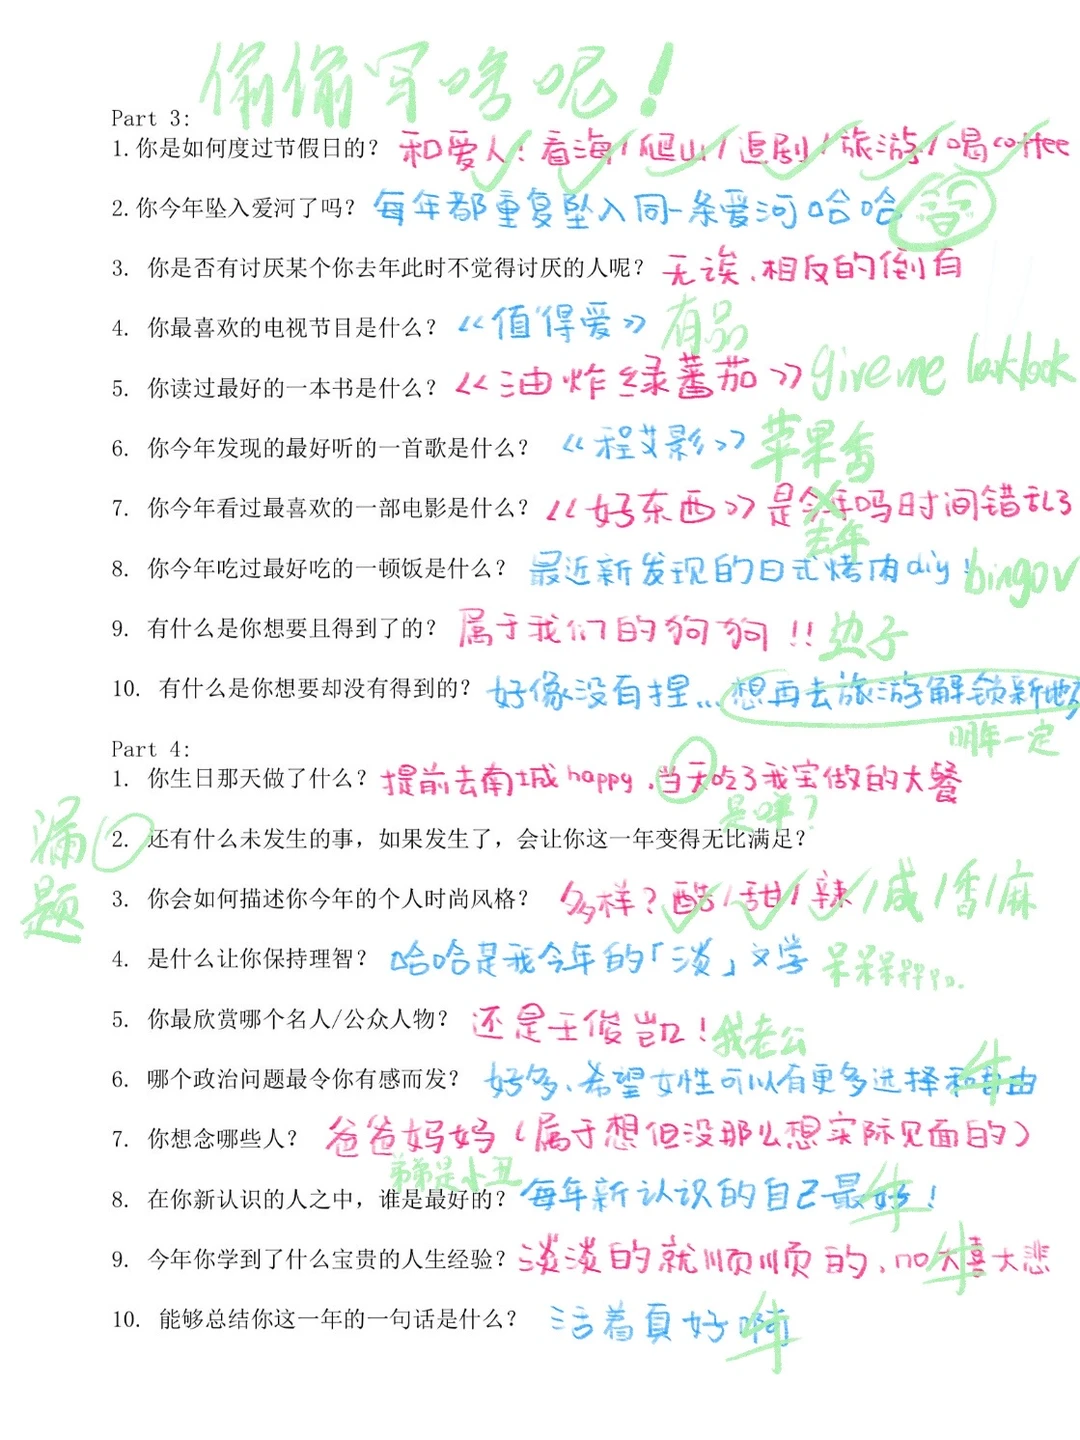 偷偷写啥呢！
Part 3:
1.你是如何度过节假日的？ 和爱人！看海/爬山/追剧/旅游/喝coffee
2.你今年坠入爱河了吗？ 每年都重复坠入同一条爱河哈哈
3. 你是否有讨厌某个你去年此时不觉得讨厌的人呢？ 无诶、相反的倒有
4. 你最喜欢的电视节目是什么？ 《值得爱》 有品
5. 你读过最好的一本书是什么？ 《油炸绿蕃茄》 give me looklook
6. 你今年发现的最好听的一首歌是什么？ 《程艾影》 苹果香
7. 你今年看过最喜欢的一部电影是什么？ 《好东西》是今年吗时间错乱了
去年
8. 你今年吃过最好吃的一顿饭是什么？ 最近新发现的日式烤肉diy！ bingo
9. 有什么是你想要且得到了的？ 属于我们的狗狗！！ 边子
10. 有什么是你想要却没有得到的？ 好像没有捏...想再去旅游解锁新地
明年一定
Part 4:
1. 你生日那天做了什么？ 提前去南城happy.当天吃了我宝做的大餐
是咩？
漏题
2. 还有什么未发生的事，如果发生了，会让你这一年变得无比满足？
3. 你会如何描述你今年的个人时尚风格？ 多样？酷/甜/辣/咸/香/麻
4. 是什么让你保持理智？ 哈哈是我今年的「淡」文学 呆呆呆
5. 你最欣赏哪个名人/公众人物？ 还是王俊凯！ 我老公
6. 哪个政治问题最令你有感而发？ 好多、希望女性可以有更多选择和自由 牛
7. 你想念哪些人？ 爸爸妈妈（属于想但没那么想实际见面的）
弟弟是小丑
8. 在你新认识的人之中，谁是最好的？ 每年新认识的自己最好！ 牛
9. 今年你学到了什么宝贵的人生经验？ 淡淡的就顺顺的、no大喜大悲 牛
10. 能够总结你这一年的一句话是什么？ 活着真好啊 牛